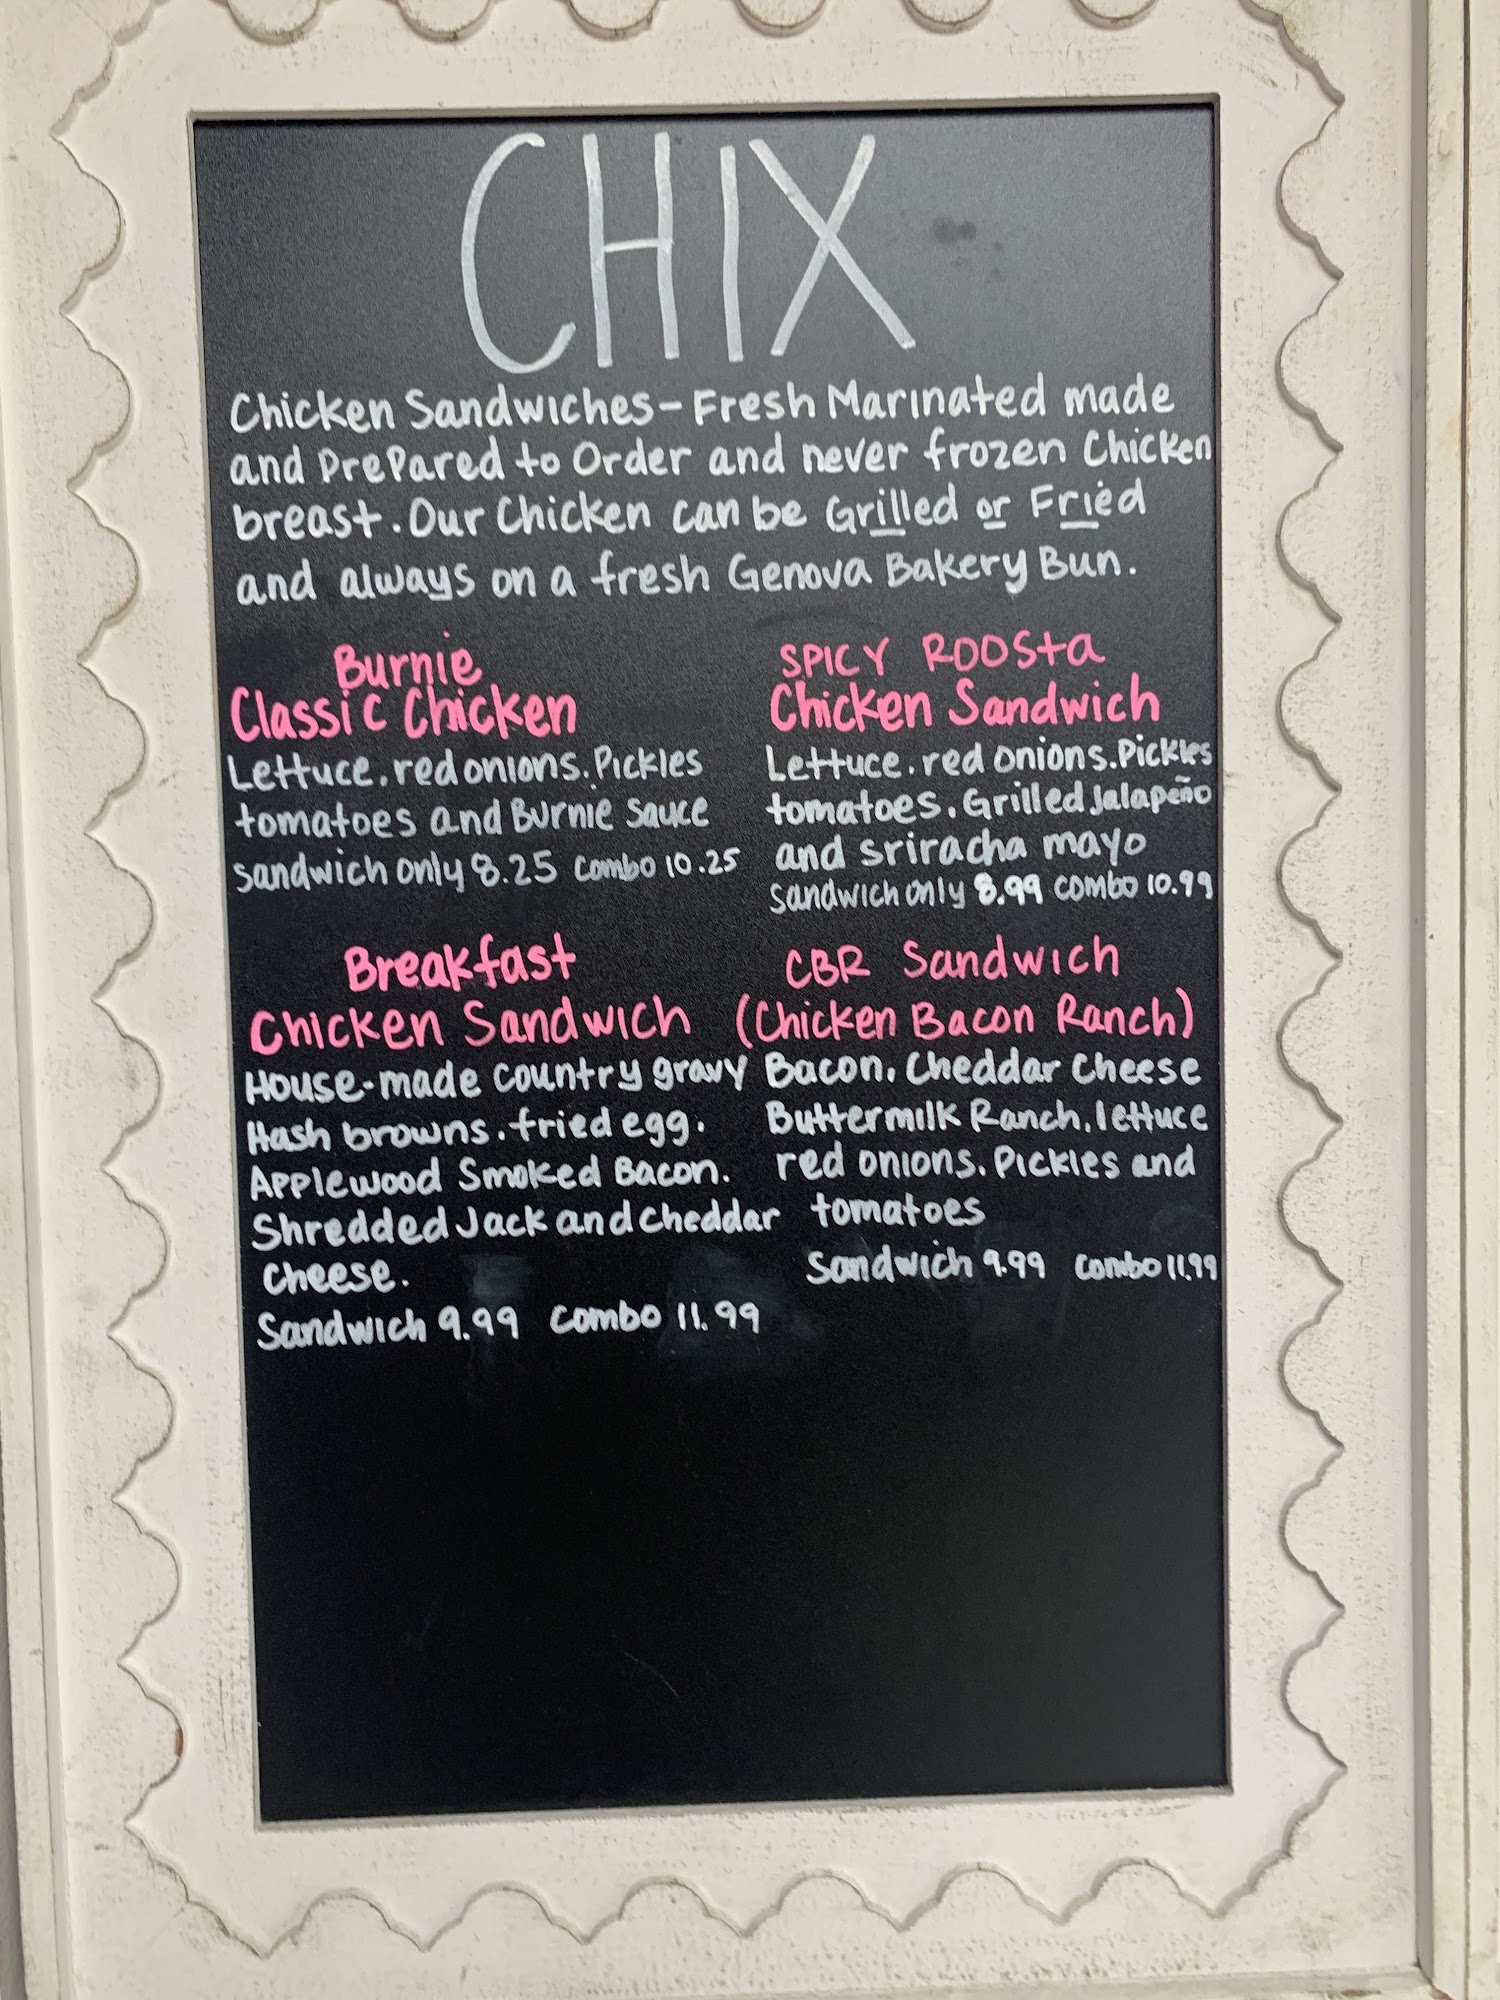 CHIX
Chicken Sandwiches - Fresh Marinated made
and prepared to Order and never frozen Chicken
breast. Our Chicken can be Grilled or Fried
and always on a fresh Genova Bakery Bun.
Burnie
Classic Chicken
Lettuce. red onions. Pickles
tomatoes and Burnie Sauce
sandwich only 8.25 combo 10.25
SPICY ROOSta
Chicken Sandwich
Lettuce. red onions. Pickles
tomatoes. Grilled Jalapeño
and sriracha mayo
Sandwich only 8.99 combo 10.99
Breakfast
Chicken Sandwich
House-made country gravy
Hash browns. fried egg.
Applewood Smoked Bacon.
Shredded Jack and Cheddar
Cheese.
Sandwich 9.99 combo 11.99
CBR Sandwich
(Chicken Bacon Ranch)
Bacon. Cheddar Cheese
Buttermilk Ranch. lettuce
red onions. Pickles and
tomatoes
Sandwich 9.99 combo 11.99